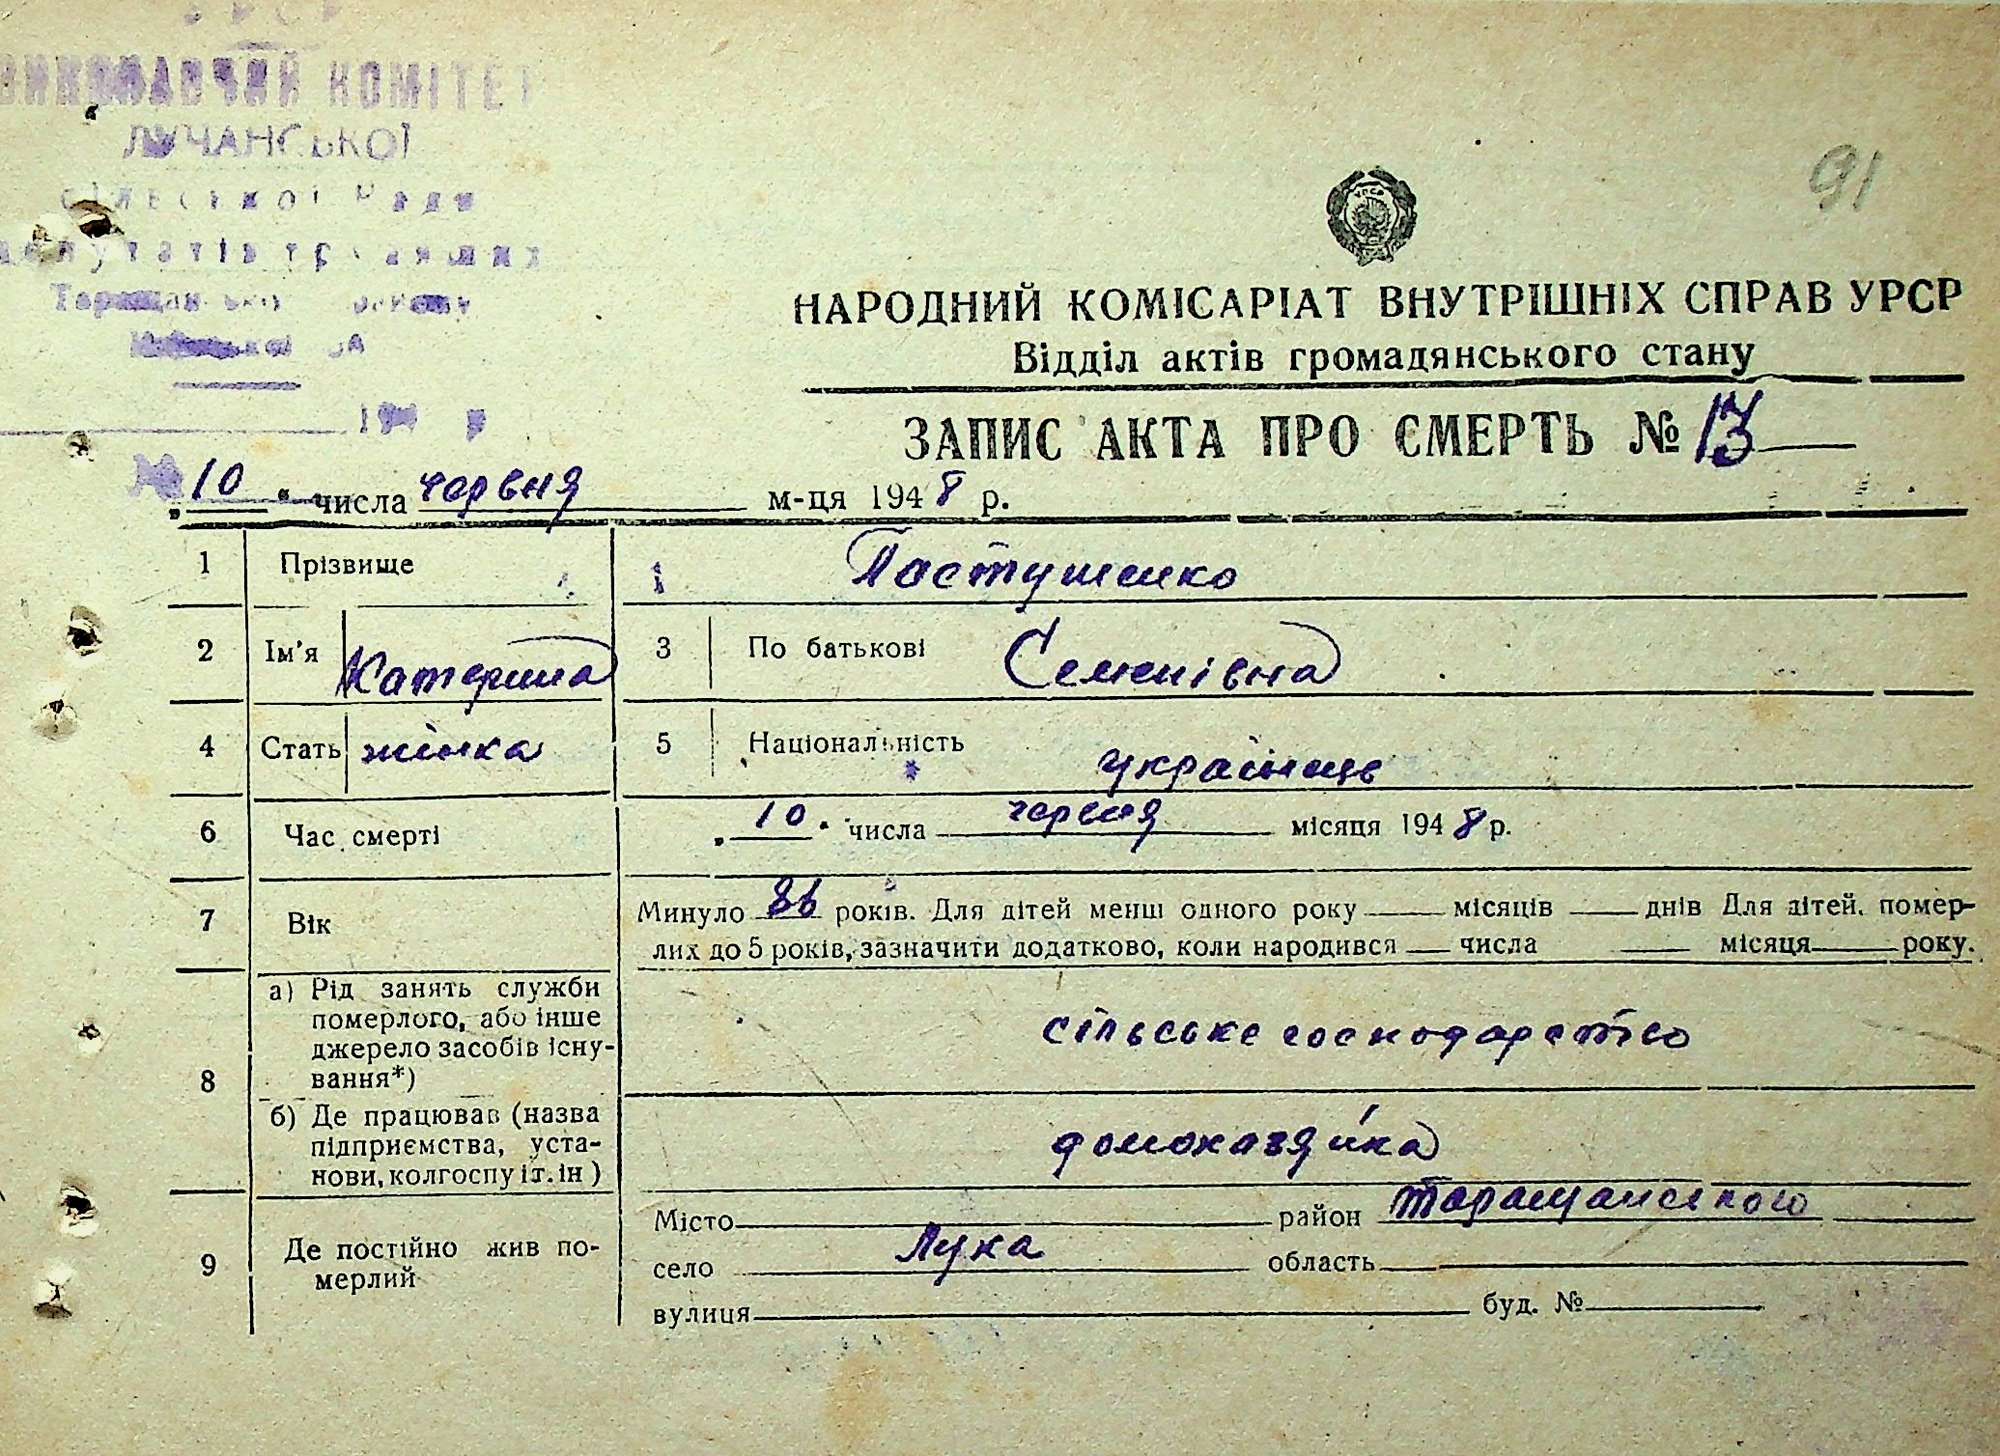 УРСР
ВИКОНАВЧИЙ КОМІТЕТ
ЛУЧАНСЬКОЇ
сільської Ради
депутатів трудящих
Таращанського району
91
НАРОДНИЙ КОМІСАРІАТ ВНУТРІШНІХ СПРАВ УРСР
Відділ актів громадянського стану
ЗАПИС АКТА ПРО СМЕРТЬ № 13
„10“ числа червня м-ця 1948 р.
1 Прізвище Пастушенко
2 Ім'я Катерина 3 По батькові Семенівна
4 Стать жінка 5 Національність українець
6 Час смерті „10“ числа червня місяця 1948 р.
7 Вік Минуло 86 років. Для дітей менш одного року місяців днів Для дітей, помер-
лих до 5 років, зазначити додатково, коли народився числа місяця року.
8 а) Рід занять служби
померлого, або інше
джерело засобів існу-
вання*) сільське господарство
б) Де працював (назва
підприємства, уста-
нови, колгоспу і т. ін) домохазяйка
9 Де постійно жив по-
мерлий
Місто район Таращанського
село Лука область
вулиця буд. №